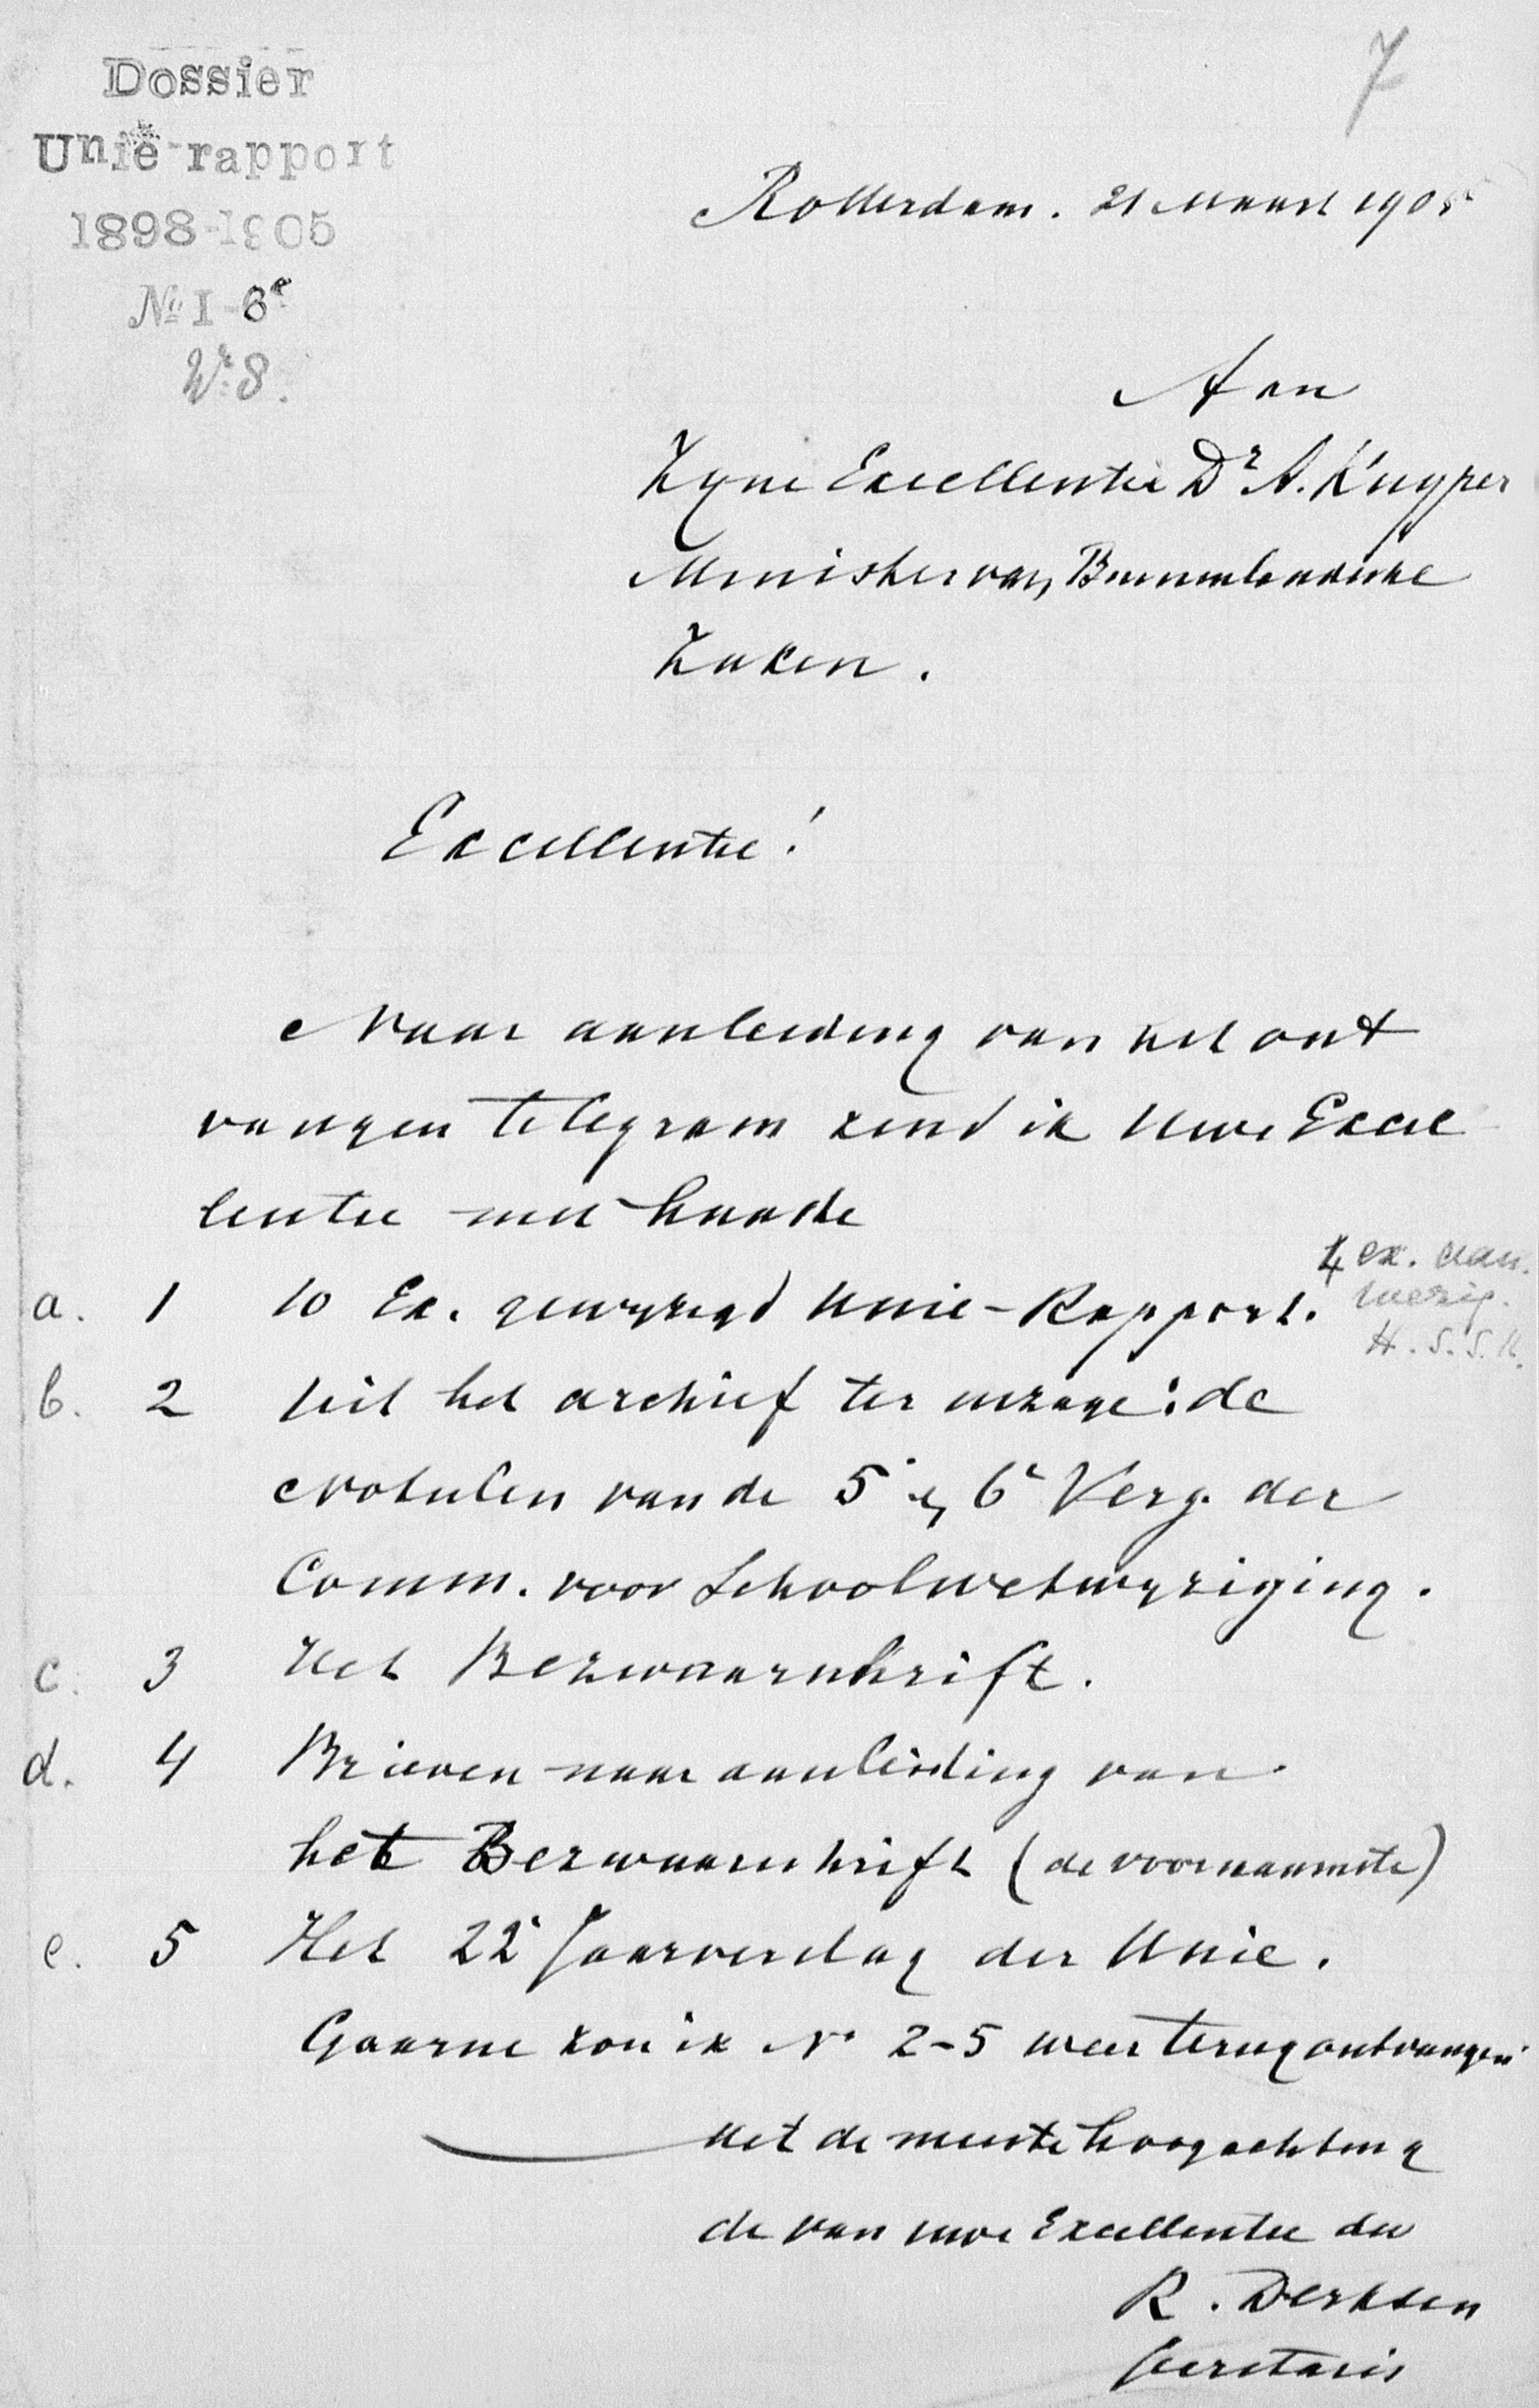 Dossier
Unie-rapport
1898-1905
No I-6e
7
Rotterdam. 21 Maart 1905
Aan
Zyne Excellentie Dr A. Kuyper
Minister van Binnenlandsche
Zaken.
Excellentie!
Naar aanleiding van het ont
vangen telegram zend ik Uwe Excel
lentie met haaste
a. 1 10 Ex. gewyzigd Unie-Rapport.
4 ex. aan-
wezig.
b. 2 Uit het archief ter inzage: de
Notulen van de 5e en 6e Verg. der
Comm. voor Schoolwetwyziging.
c. 3 Het Bezwaarschrift.
d. 4 Brieven naar aanleiding van
het Bezwaarschrift (de voornaamste)
e. 5 Het 22e Jaarverslag der Unie.
Gaarne zou ik No 2-5 weer terugontvangen
Met de meeste hoogachting
de van uwe Excellentie dw
R. Derksen
Secretaris